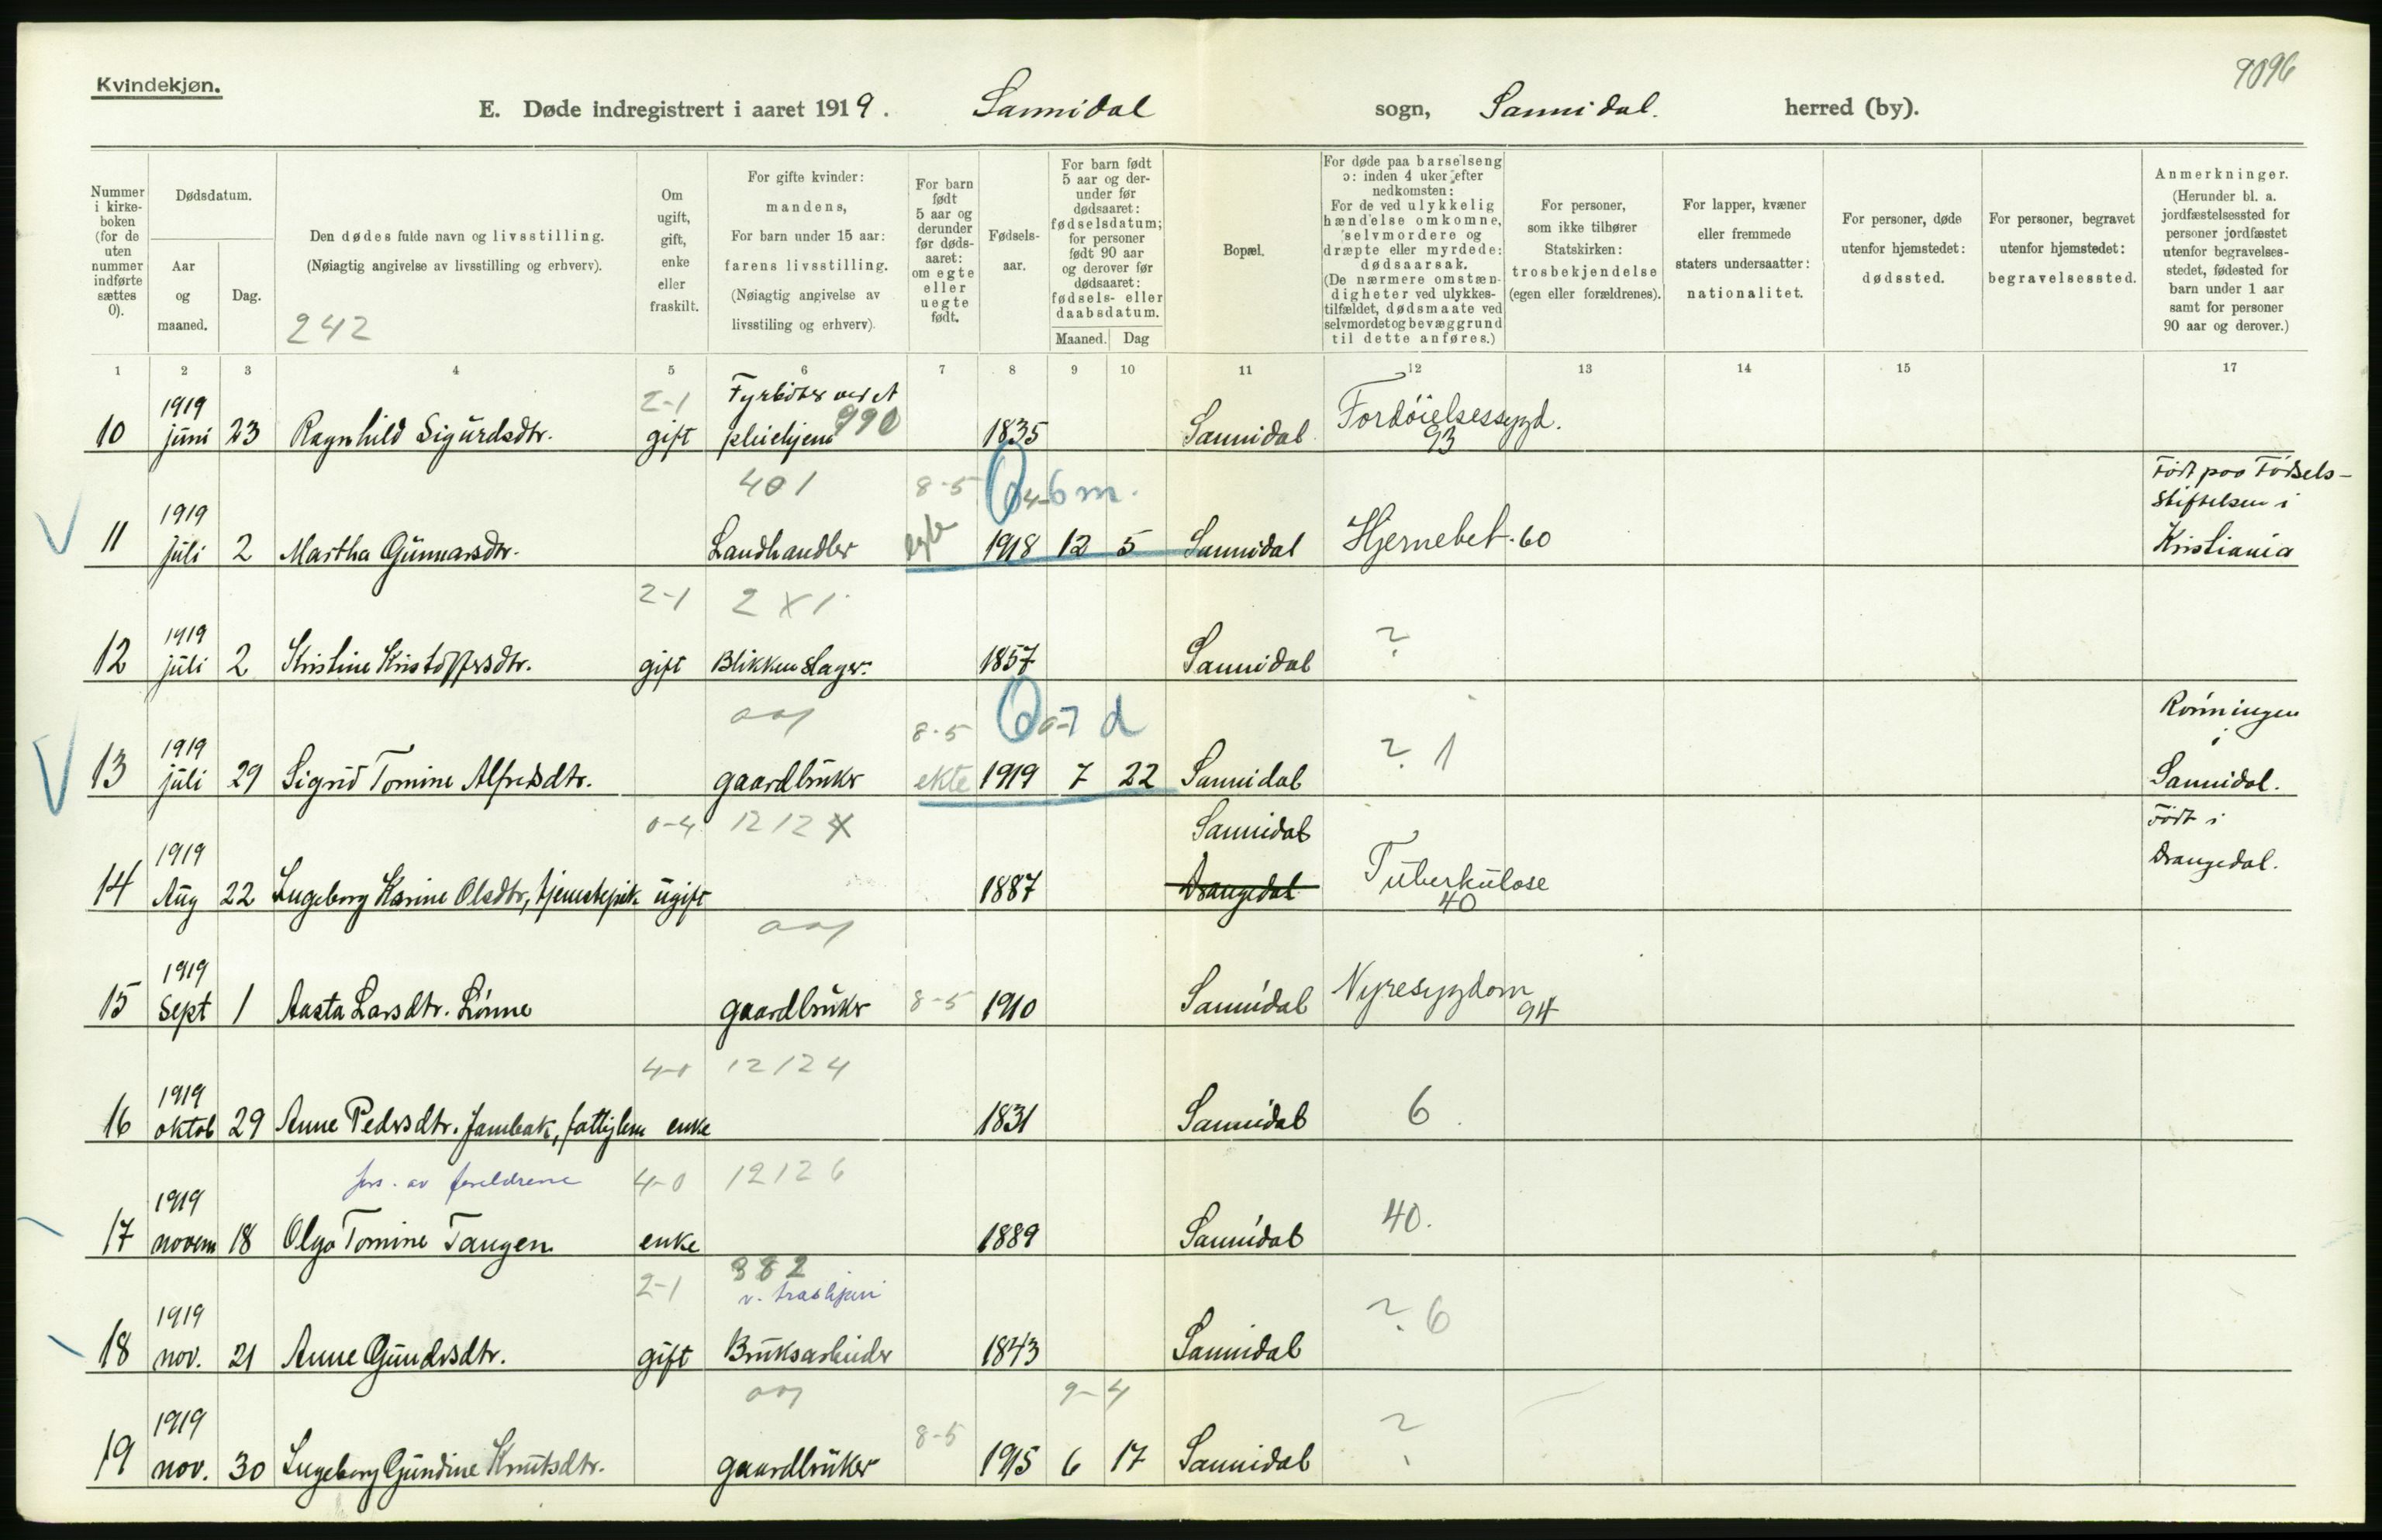 Kvindekjøn.
9096
E. Døde indregistrert i aaret 1919. Sannidal sogn, Sannidal. herred (by).
Nummer i kirke-boken (for de uten nummer indførte sættes 0).
Dødsdatum.
Aar og maaned.
Dag.
Den dødes fulde navn og livsstilling.
(Nøiagtig angivelse av livsstilling og erhverv).
242
Om ugift, gift, enke eller fraskilt.
For gifte kvinder: mandens,
For barn under 15 aar: farens livsstilling.
(Nøiagtig angivelse av livsstiling og erhverv).
For barn født 5 aar og derunder før døds-aaret: om egte eller uegte født.
Fødsels-aar.
For barn født 5 aar og der-under før dødsaaret: fødselsdatum; for personer født 90 aar og derover før dødsaaret: fødsels- eller daabsdatum.
Maaned. Dag
Bopæl.
For døde paa barselseng ɔ: inden 4 uker efter nedkomsten:
For de ved ulykkelig hændelse omkomne, selvmordere og dræpte eller myrdede: dødsaarsak.
(De nærmere omstæn-digheter ved ulykkes-tilfældet, dødsmaate ved selvmordet og bevæggrund til dette anføres.)
For personer, som ikke tilhører Statskirken: trosbekjendelse (egen eller forældrenes).
For lapper, kvæner eller fremmede staters undersaatter: nationalitet.
For personer, døde utenfor hjemstedet: dødssted.
For personer, begravet utenfor hjemstedet: begravelsessted.
Anmerkninger.
(Herunder bl. a. jordfæstelsessted for personer jordfæstet utenfor begravelses-stedet, fødested for barn under 1 aar samt for personer 90 aar og derover.)
1 2 3 4 5 6 7 8 9 10 11 12 13 14 15 17
1919 2-1 Fyrbøter ved et
10 juni 23 Ragnhild Sigurdsdtr. gift pleiehjem 990 1835 Sannidal Fordøielsessygd. 93
401 8-5 4-6 m. Født paa Fødsels-
1919 Stiftelsen i
11 juli 2 Martha Gunnarsdtr. Landhandler egte 1918 12 5 Sannidal Hjernebet. 60 Kristiania
2-1 2X1
1919
12 juli 2 Kristine Kristoffersdtr. gift Blikkenslager. 1857 Sannidal ?
8-5 0-7 d Rønningen
1919 i
13 juli 29 Sigrid Tomine Alfredsdtr. gaardbruker ekte 1919 7 22 Sannidal ? 1 Sannidal.
0-4 1212X Sannidal Født i
1919 Drangedal.
14 Aug 22 Ingeborg Karine Olsdtr, tjenestepike ugift 1887 Drangedal Tuberkulose 40
1919
15 Sept 1 Aasta Larsdtr. Lønne gaardbruker 8-5 1910 Sannidal Nyresygdom 94
4-0 12124
1919
16 oktob 29 Anne Pedersdtr. , fattiglem enke 1831 Sannidal 6
fors. av foreldrene 4-0 12126
1919
17 novem 18 Olga Tomine Tangen enke 1889 Sannidal 40.
2-1 382
1919
18 nov. 21 Anne Gundersdtr. gift Bruksarbeider 1843 Sannidal ? 6
9-4
1919 8-5
19 nov. 30 Ingeborg Gundine Knutsdtr. gaardbruker 1915 6 17 Sannidal ?